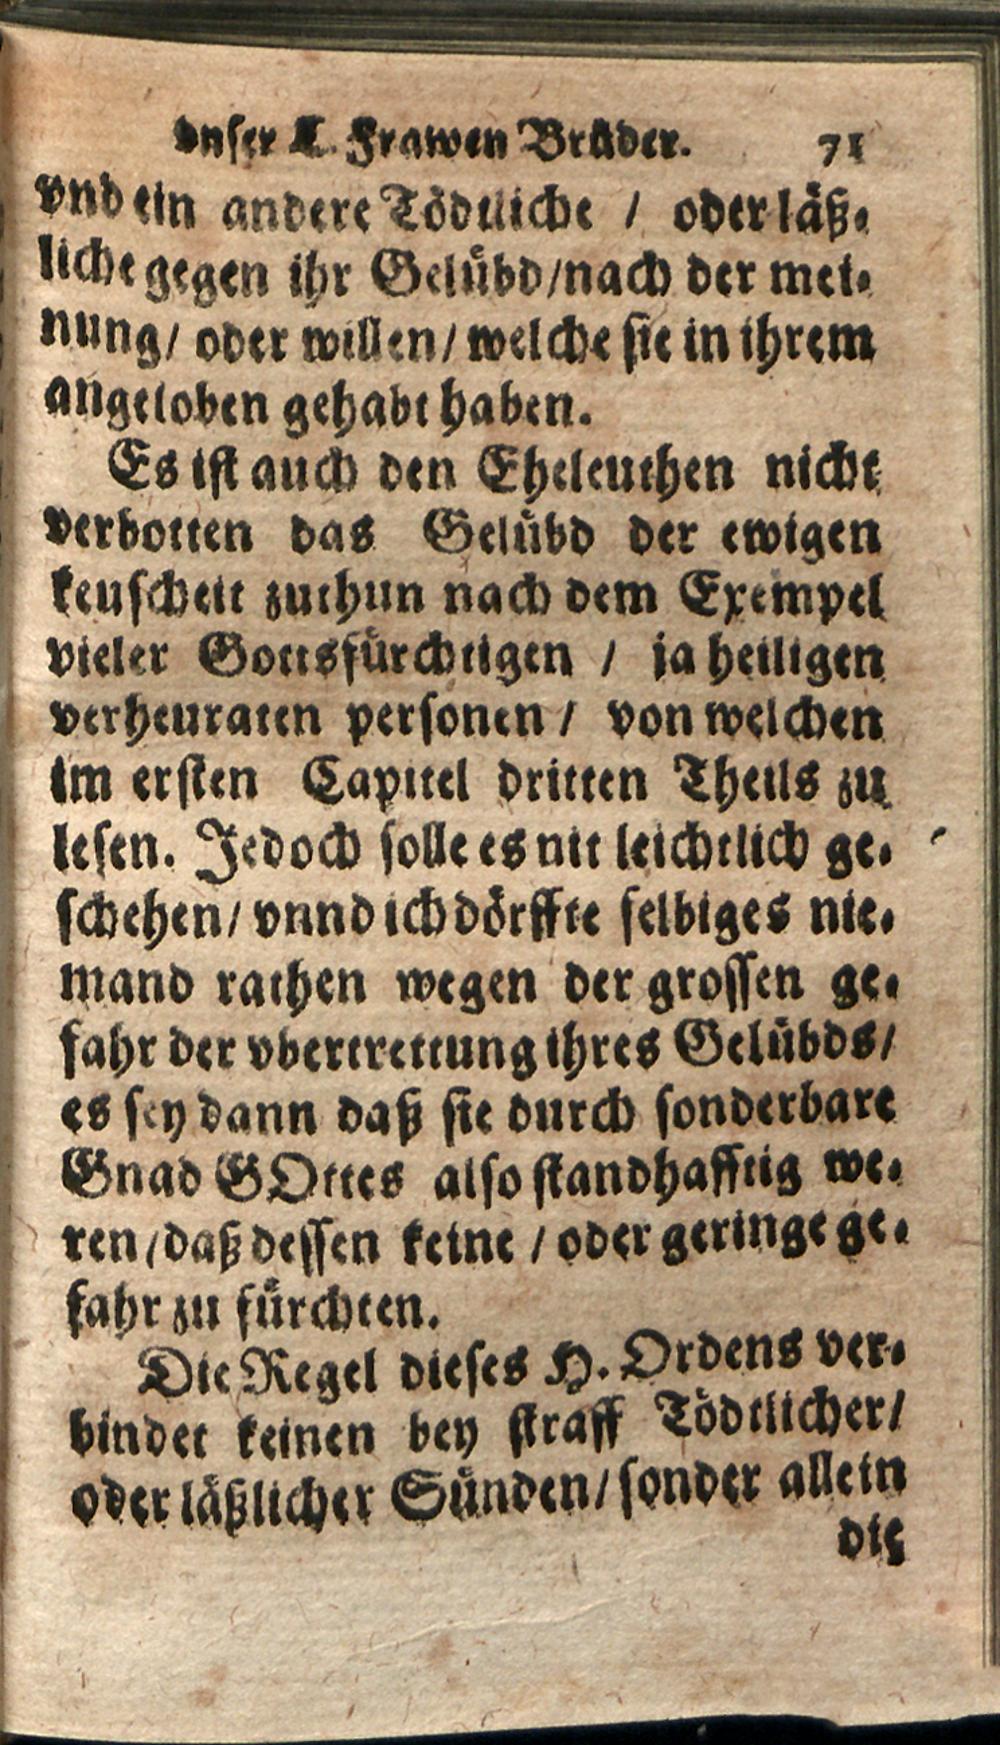 vnser L. Frawen Brüder. 71
vnd ein andere Tödtliche / oder läß-
liche gegen ihr Gelübd/nach der mei-
nung/ oder willen/ welche sie in ihrem
angeloben gehabt haben.
Es ist auch den Eheleuthen nicht
verbotten das Gelübd der ewigen
keuscheit zuthun nach dem Exempel
vieler Gottsfürchtigen / ja heiligen
verheuraten personen / von welchen
im ersten Capitel dritten Theils zu
lesen. Jedoch solle es nit leichtlich ge-
schehen/ vnnd ich dörffte selbiges nie-
mand rathen wegen der grossen ge-
fahr der vbertrettung ihres Gelübds/
es sey dann daß sie durch sonderbare
Gnad GOttes also standhafftig we-
ren/daß dessen keine / oder geringe ge-
fahr zu fürchten.
Die Regel dieses H. Ordens ver-
bindet keinen bey straff Tödtlicher/
oder läßlicher Sünden/ sonder allein
die